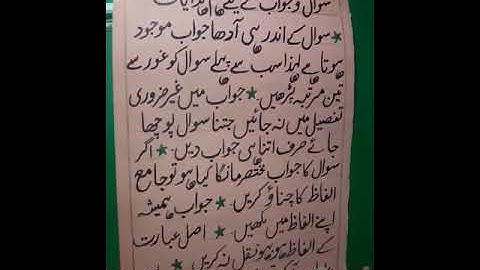 سوال و جواب کے لیے اہم ہدایات
★ سوال کے اندر ہی آدھا جواب موجود
ہوتا ہے لہذا سب سے پہلے سوال کو غور سے
تین مرتبہ پڑھیں ★ جواب میں غیر ضروری
تفصیل میں نہ جائیں جتنا سوال پوچھا
جائے صرف اتنا ہی جواب دیں ★ اگر
سوال کا جواب مختصر مانگا گیا ہو تو جامع
الفاظ کا چناؤ کریں ★ جواب ہمیشہ
اپنے الفاظ میں لکھیں ★ اصل عبارت
کے الفاظ ہو بہو نقل نہ کریں ★